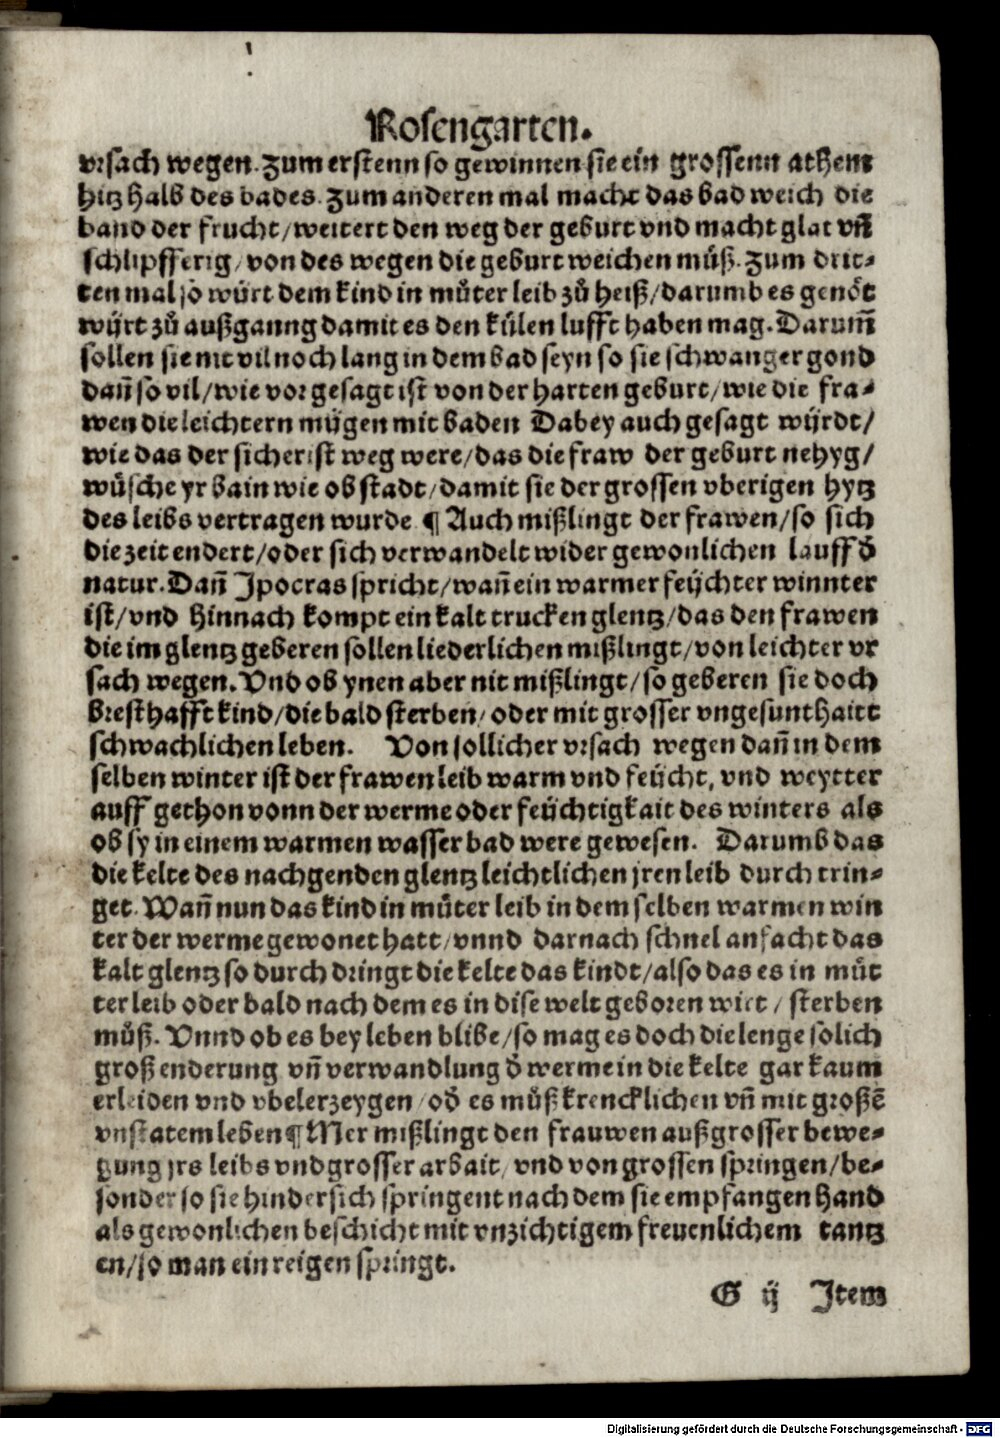 Rosengarten.
vrsach wegen. Zum erstenn so gewinnen sie ein grossenn athem
hitz halb des bades. Zum anderen mal macht das bad weich die
band der frucht/weitert den weg der geburt vnd macht glat vn̄
schlipfferig/von des wegen die geburt weichen müß. Zum drit-
ten mal so würt dem kind in můter leib zů heiß/darumb es genöt
würt zů außganng damit es den kůlen lufft haben mag. Darum̄
sollen sie nit vil noch lang in dem bad seyn so sie schwanger gond
dan̄ so vil/wie vor gesagt ist von der harten geburt/wie die fra-
wen die leichtern mügen mit baden Dabey auch gesagt würdt/
wie das der sicherist weg were/das die fraw der geburt nehyg/
wůsche yr bain wie ob stadt/damit sie der grossen vberigen hytz
des leibs vertragen wurde ¶ Auch mißlingt der frawen/so sich
die zeit endert/oder sich verwandelt wider gewonlichen lauff d̄
natur. Dan̄ Ipocras spricht/wan̄ ein warmer feüchter winnter
ist/vnd hinnach kompt ein kalt trucken glentz/das den frawen
die im glentz geberen sollen liederlichen mißlingt/von leichter vr
sach wegen. Vnd ob ynen aber nit mißlingt/so geberen sie doch
bresthafft kind/die bald sterben/oder mit grosser vngesunthaitt
schwachlichen leben. Von sollicher vrsach wegen dan̄ in dem
selben winter ist der frawen leib warm vnd feücht, vnd weytter
auff gethon vonn der werme oder feüchtigkait des winters als
ob sy in einem warmen wasser bad were gewesen. Darumb das
die kelte des nachgenden glentz leichtlichen jren leib durch trin-
get. Wan̄ nun das kind in můter leib in dem selben warmen win
ter der werme gewonet hatt/vnnd darnach schnel anfacht das
kalt glentz so durch dringt die kelte das kindt/also das es in můt
ter leib oder bald nach dem es in dise welt geboren wirt/sterben
můß. Vnnd ob es bey leben blibe/so mag es doch die lenge solich
groß enderung vn̄ verwandlung d̄ werme in die kelte gar kaum
erleiden vnd vbelerzeygen/od̄ es můß krencklichen vn̄ mit große̅
vnstatem leben ¶ Mer mißlingt den frauwen auß grosser bewe-
gung jrs leibs vnd grosser arbait/vnd von grossen springen/be-
sonder so sie hindersich springent nach dem sie empfangen hand
als gewonlichen beschicht mit vnzichtigem freuenlichem tantz
en/so man ein reigen springt.
G ij Item
Digitalisierung gefördert durch die Deutsche Forschungsgemeinschaft - DFG